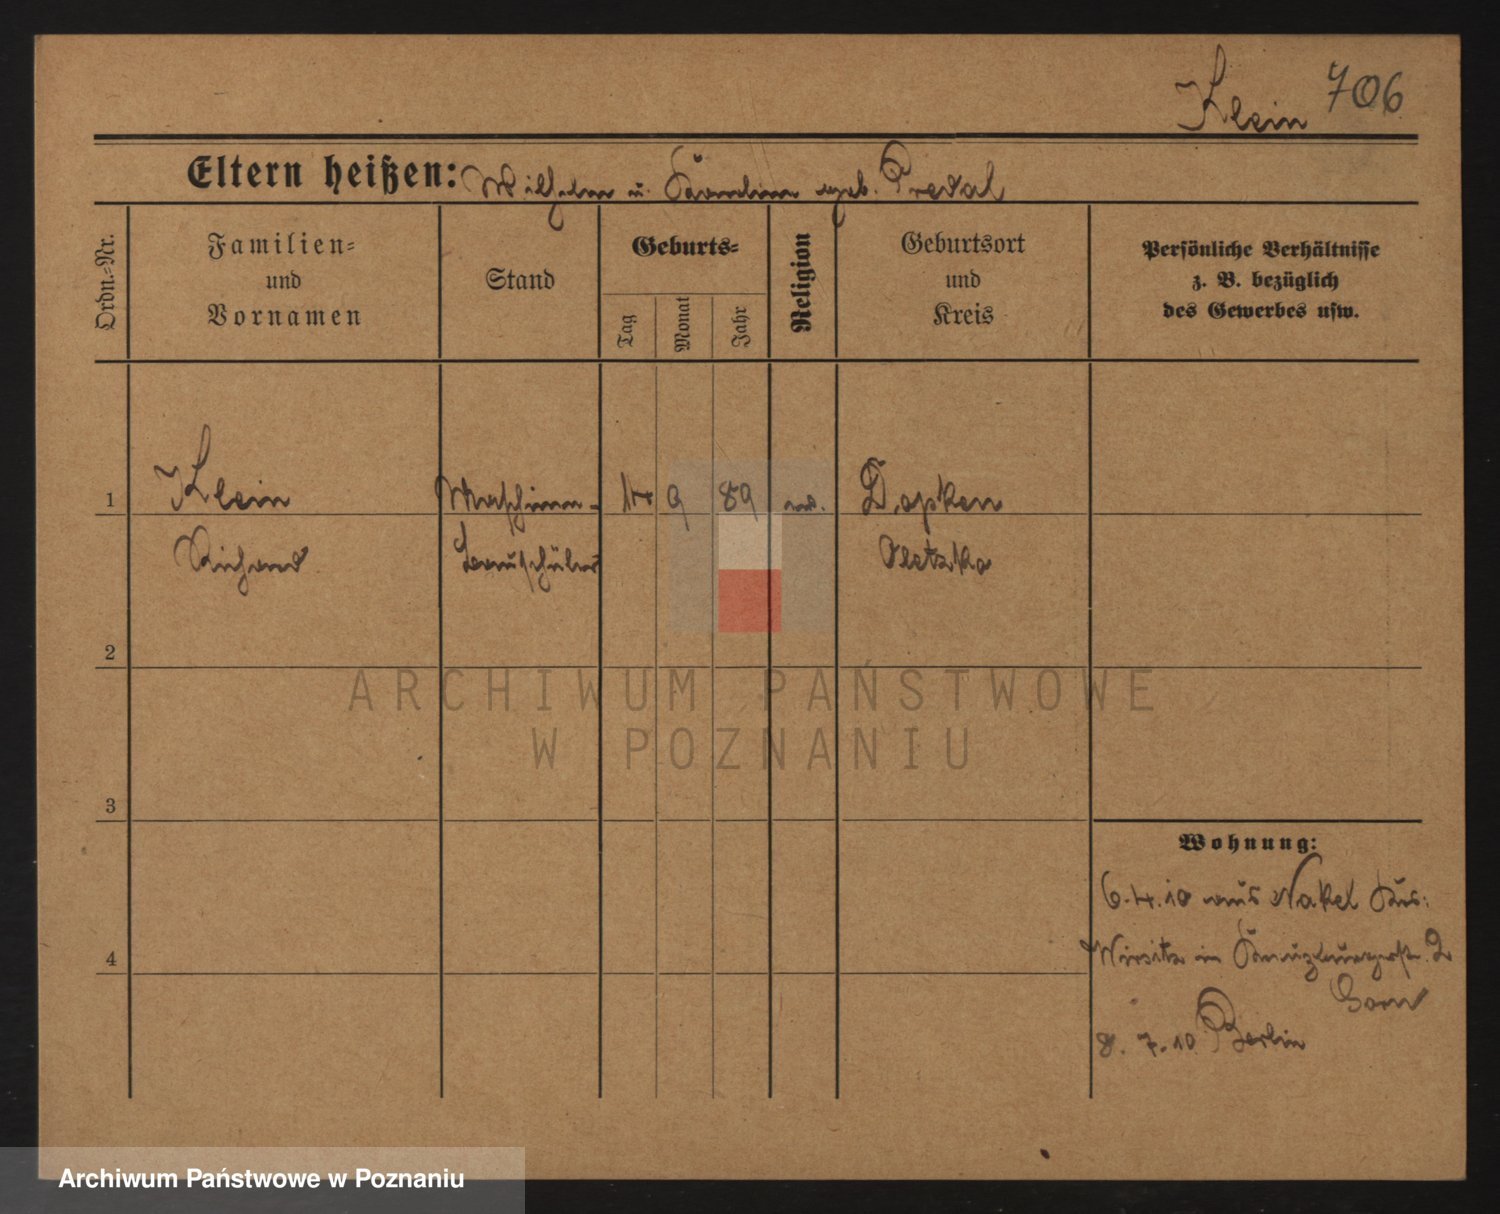 Klein 706
Eltern heißen: Wilhelm u. Karoline geb. Predal
Ordn.-Nr.
Familien-
und
Vornamen
Stand
Geburts-
Tag
Monat
Jahr
Religion
Geburtsort
und
Kreis
Persönliche Verhältnisse
z. B. bezüglich
des Gewerbes usw.
1 Klein Maschinen- 14 9 89 ev. Dopken
Richard bauschüler Oletzko
2
ARCHIWUM PAŃSTWOWE
W POZNANIU
3
Wohnung:
6.4.10 aus Nakel Krs:
4
Wirsitz in Kreuzburgerstr. 2
8. 7. 10 Berlin
Archiwum Państwowe w Poznaniu